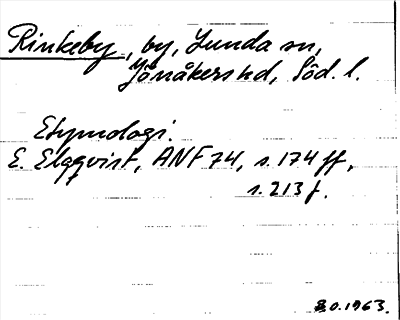 Rinkeby, by, Lunda sn,
Jönåkers hd, Söd. l.
Etymologi.
E. Elqvist, ANF 74, s. 174 ff,
s. 213 f.
1963.